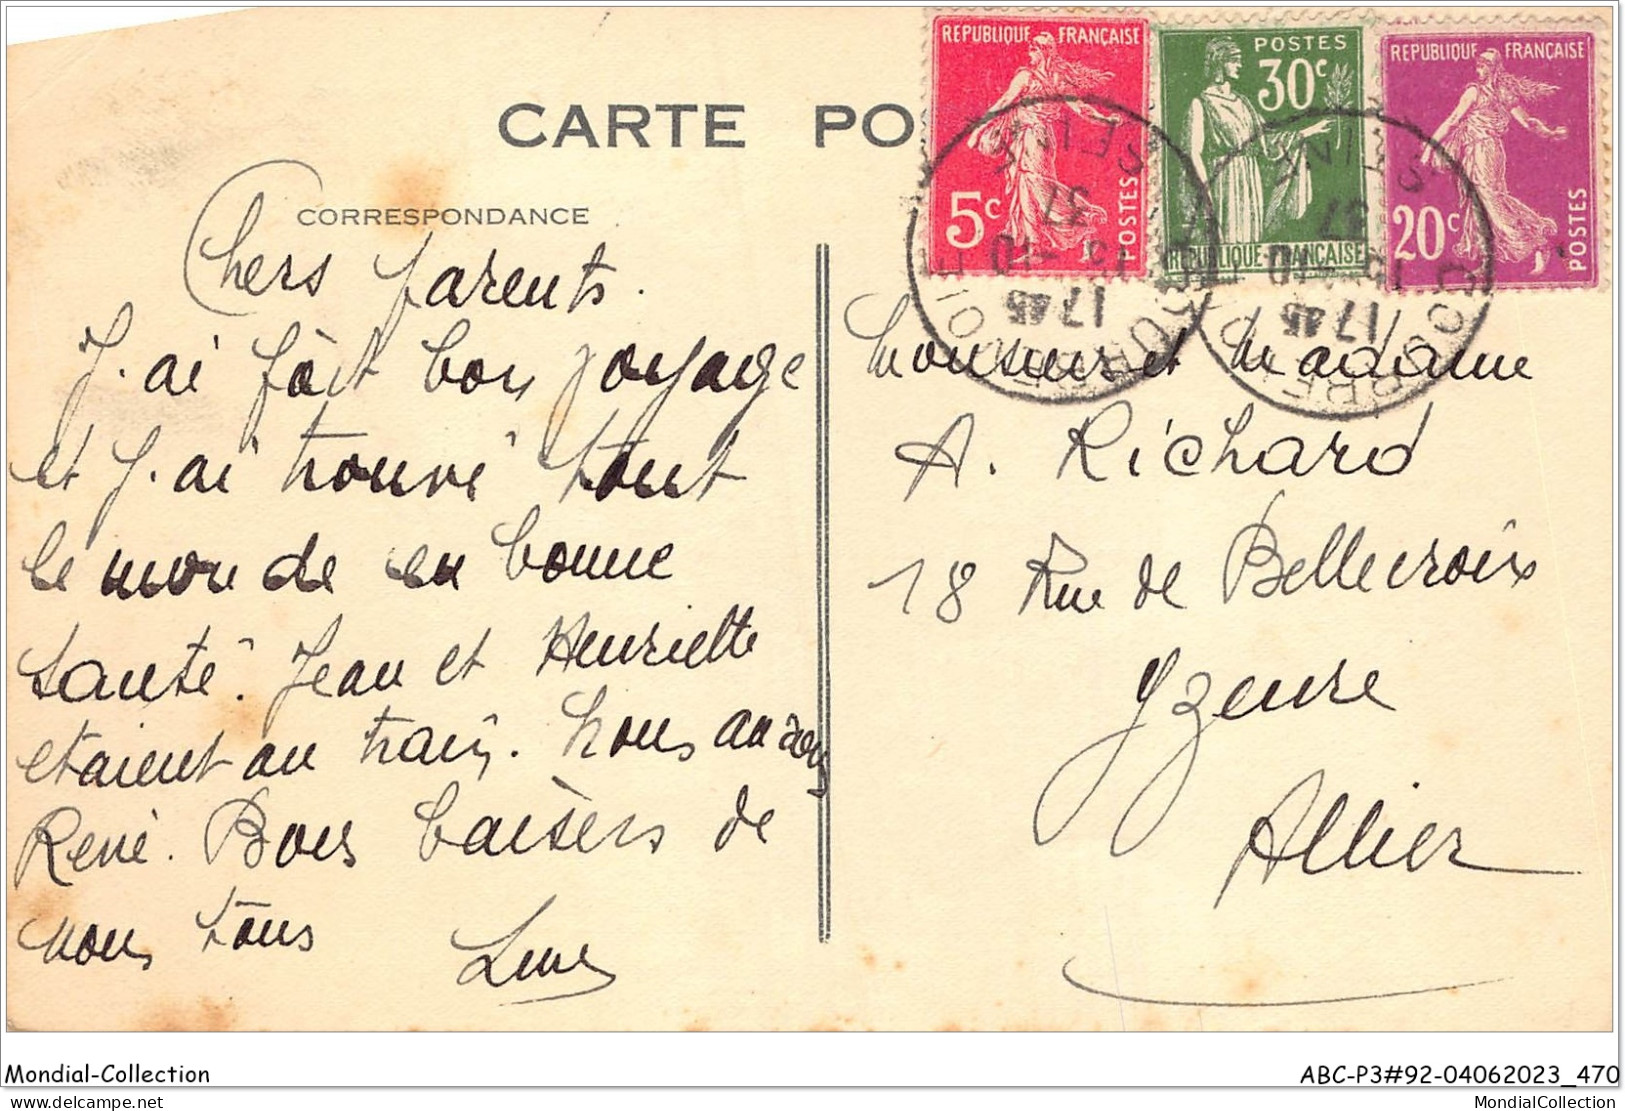 CARTE PO
CORRESPONDANCE
REPUBLIQUE FRANÇAISE
5c
POSTES
POSTES
30c
REPUBLIQUE FRANÇAISE
REPUBLIQUE FRANÇAISE
20c
POSTES
COURBEVOIE
17 45
13 -10
37
SEINE
Chers parents.
J.ai fait bon voyage
et J.ai trouvé tout
le monde en bonne
santé. Jean et Henriette
etaient au train. nous avons
René. Bons baisers de
nous tous
Monsieur et Madame
A. Richard
18 Rue de Bellecroix
Yzeure
Allier
Mondial-Collection
ABC-P3#92-04062023_470
delcampe.net
MondialCollection